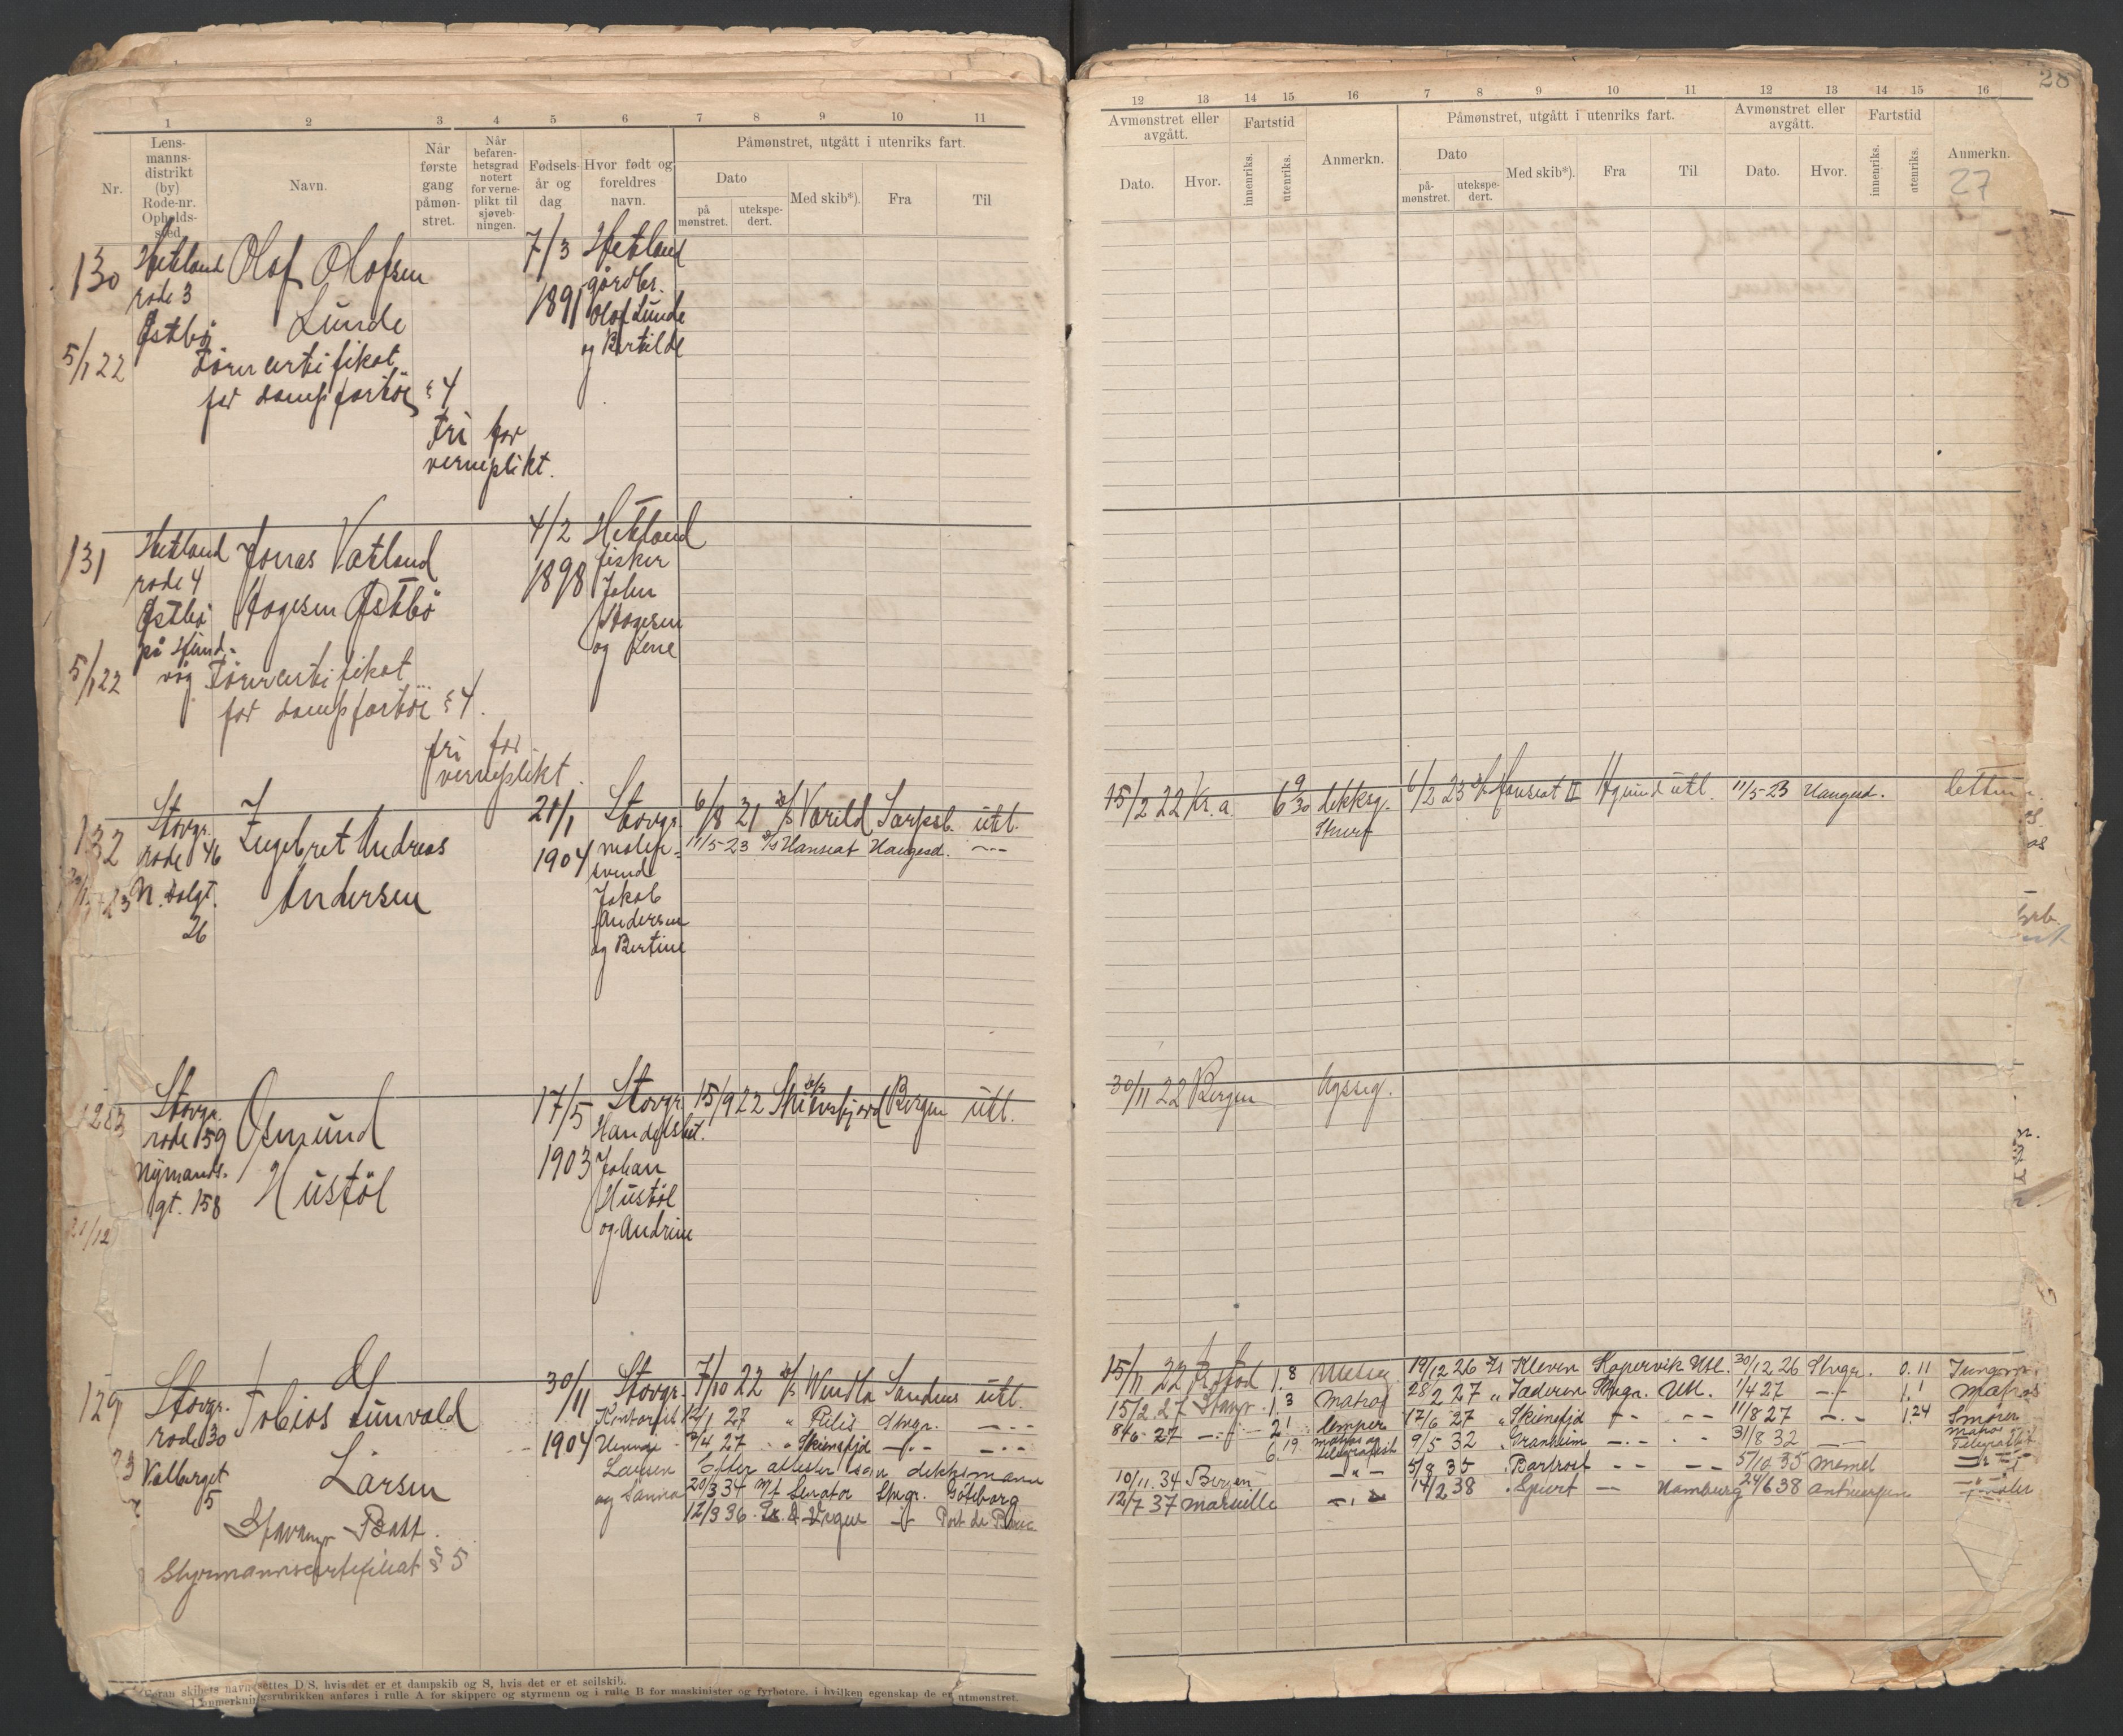 28
27
1 2 3 4 5 6 7 8 9 10 11
Nr.
Lens-
manns-
distrikt
(by)
Rode-nr.
Opholds-
sted.
Navn.
Når
første
gang
påmøn-
stret.
Når
befaren-
hetsgrad
notert
for verne-
plikt til
sjøveb-
ningen.
Fødsels-
år og
dag
Hvor født og
foreldres
navn.
Påmønstret, utgått i utenriks fart.
Dato
på
mønstret.
utekspe-
dert.
Med skib*).
Fra
Til
12 13 14 15 16 7 8 9 10 11 12 13 14 15 16
Avmønstret eller
avgått.
Dato.
Hvor.
Fartstid
innenriks.
utenriks.
Anmerkn.
Påmønstret, utgått i utenriks fart.
Dato
på-
mønstret.
utekspe-
dert.
Med skib*).
Fra
Til
Avmønstret eller
avgått.
Dato.
Hvor.
Fartstid
innenriks.
utenriks.
Anmerkn.
130
5/1 22
Hetland
rode 3
Østbø
Olaf Olafsen
Lunde
Førercertifikat
for dampfartøi § 4
Fri for
verneplikt.
7/3
1891
Hetland
gårdbr.
Olaf Lunde
og Bertilde
131
5/1 22
Hetland
rode 4
Østbø
på Hund-
våg
Jonas Vatland
Hagesen Østbø
Førercertifikat
for dampfartøi § 4.
fri for
verneplikt.
4/2
1898
Hetland
fisker
John
Hagesen
og Lene
132
Stavgr.
rode 46
N. Dalgt.
26
Ingebret Andreas
Andersen
21/1
1904
Stavgr.
maler-
svend
Jakob
Andersen
og Bertine
6/8 21 D/S Varild Sarpsb. utl.
11/5-23 D/S Hanseat Haugesd. —
15/2 22 Kr.a. 6 9/30 dekksg.
6/2 23 D/S Hanseat II utl. 11/5-23 Haugesd. lettm
Stavgr.
rode 159
Nymands-
gt. 158
Osmund
Hustøl
17/5
1903
Stavgr.
Handelsbet.
Johan
Hustøl
og Andrine
15/9 22 D/S Skiensfjord Bergen utl.
30/11 22 Bergen
129
Stavgr.
rode 30
Valberget
5
Tobias Sunvald
Larsen
Stavanger Patt.
Styrmannscertifikat § 5
30/11
1904
Stavgr.
Larsen
og Sanna
7/10 22 D/S Wendla Sandnes utl.
12/1 27 " Stvgr. —
2/4 27 " Skiensfjd — —
Efter attester som dekksmann
20/3 34 M/t Senator Stvgr. Göteborg
12/3 36 Vague — Port de Bouc
15/11 22 1. 8
15/2 27 Stavgr. 1. 3 Matros
8/6-27 — 2. 1 lemper
6. 19 matros og telegrafist
10/11. 34 Bergen — " —
12/7 37 Marseille — " —
19/12 26 D/S Kleven Kopervik Utl. 30/12 26 Stvgr. 0. 11 Jungm.
28/2 27 " Jæderen Stvgr. Utl. 1/4 27 — 1. 1 Matros
17/6 27 " Skiensfjd — — 11/8 27 — 1. 24 Smører
9/5 32 " Granheim — — 31/8 32 — Matros Telegrafist
5/8 35 " Barfrost — — 5/10 35 Memel — " —
14/2 38 " Spurt — Hamburg 24/6 38 Antwerpen
Foran skibets navn settes D S, hvis det er et dampskib og S, hvis det er et seilskib.
I anmerkningsrubrikken anføres i rulle A for skippere og styrmenn og i rulle B for maskinister og fyrbøtere, i hvilken egenskap de er utmønstret.